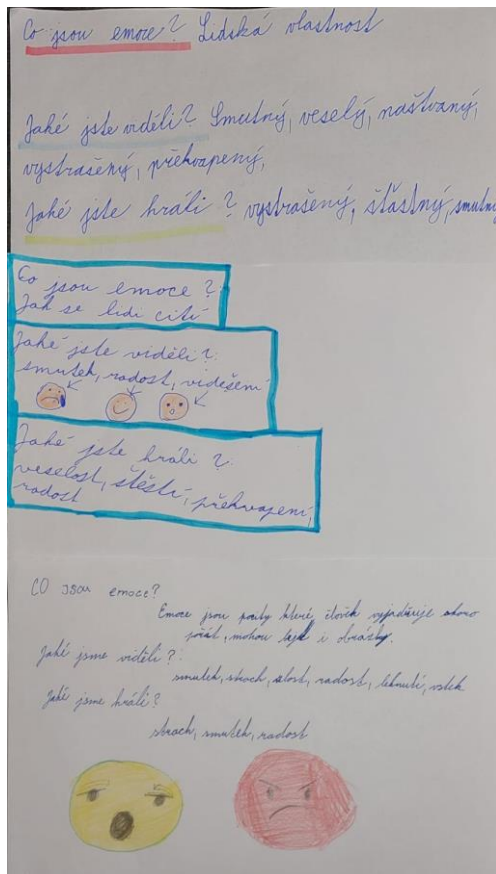 Co jsou emoce? Lidská vlastnost
Jaké jste viděli? Smutný, veselý, naštvaný,
vystrašený, překvapený,
Jaké jste hráli? vystrašený, šťastný, smutný
Co jsou emoce?
Jak se lidi cití
Jaké jste viděli?
smutek, radost, viděšení
Jaké jste hráli?
veselost, štěstí, překvapení,
radost
CO jsou emoce?
Emoce jsou pocity které člověk vyjadřuje skoro
pořád, mohou být i obrázky.
Jaké jsme viděli?:
smutek, strach, zlost, radost, leknutí, vztek
Jaké jsme hráli?
strach, smutek, radost